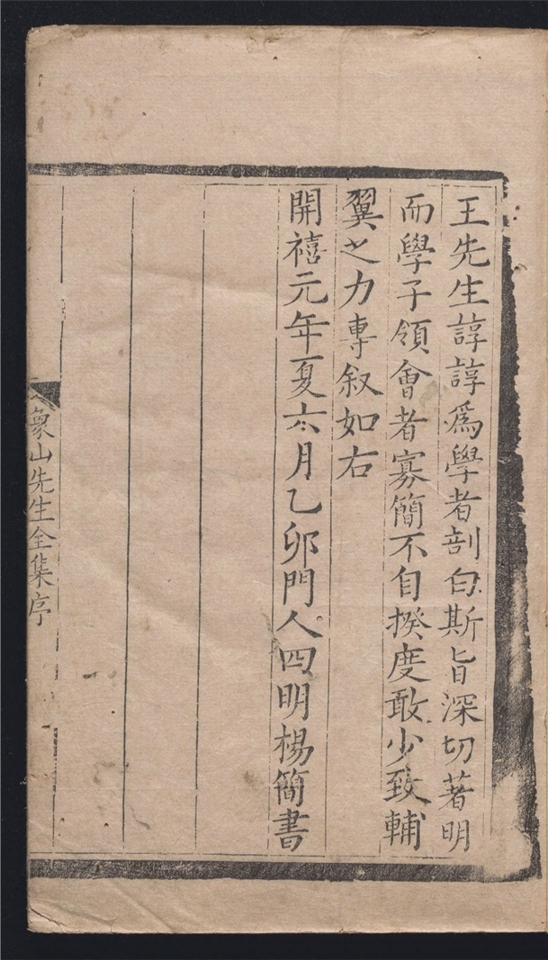 王先生諄諄爲學者剖白斯旨深切著明
而學子領會者寡簡不自揆度敢少致輔
翼之力專叙如右
開禧元年夏六月乙卯門人四明楊簡書
象山先生全集序